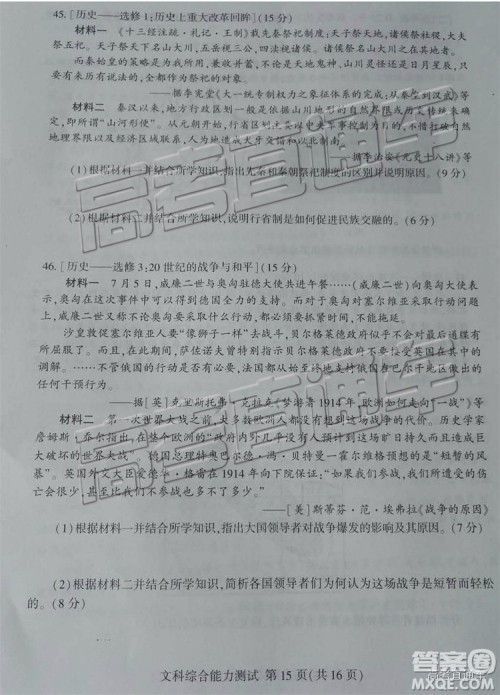 45.[历史——选修1:历史上重大改革回眸](15分)
材料一 《十三经注疏·礼记·王制》载先秦祭祀制度:天子祭天地,诸侯祭社稷,大夫
祭五祀。天子祭天下名山大川,五岳视三公,四渎视诸侯。诸侯祭名山大川之在其地者。
而秦始皇的策略是凡山川皆祭,而不论名山川是还是日月星辰,只要
历来有所信仰的,全部作为
——据李宪堂《大一统专制权力之象征体系的完成:从秦到汉武》等
材料二 秦汉以来,地方行政区划一般是依据山川地形的自然走向来建置
朝,即所谓"山河形便"。从元朝开始,行省区划以中央军事
界线以及经济区域联系,人为地造成犬牙交错和以北制南。
——据李治安《元史十八讲》等
(1)根据材料一并结合所学知识,指出先秦和秦朝祭祀制度的区别并说明原因。(9分)
(2)根据材料二并结合所学知识,说明行省制是如何促进民族交融的。(6分)
46.[历史——选修3:20世纪的战争与和平](15分)
材料一 7月5日,威廉二世与奥匈驻德大使共进午餐……(威廉二世)向奥匈大使表
示,奥匈在这次事件中可以得到德国的全力支持……奥匈对塞尔维亚采取行动问题
上,威廉二世又称,不论奥匈要采取什么行动,都必须要抓紧时间,不能拖
沙皇敦促塞尔维亚人要"像狮子一样"去战斗,贝尔格莱德政府似乎不会对最后通牒有
所屈服了。而在此期间,萨佐诺夫曾特别指示贝尔格莱德政府不要接受英国在其中的
调解。……不管俄国的行动是否有必要,法国都始终坚决地支持俄国在巴尔干做出的
任何干预行为。
——据[英]克里斯托弗·克拉克《梦游者1914年,欧洲如何走向"一战"》等
材料二 第一次世界大战之前,夫多数欧洲人都没有想到这场战争的代价。历史学家
詹姆斯·乔尔指出,在整个欧洲的内阁和外交部中,几乎没有人预料到这场旷日持久并造成巨
大破坏的世界大战。 德国总理特奥巴尔登·冯·贝特曼一霍尔维格预想的是"一场短暂的风
暴"。英国外交大臣爱德华·格雷在1914年向下院保证:"如果我们参战,我们所遭受的伤
亡会非常小,甚至比我们不参战也多不了多少。"
——[美]斯蒂芬·范·埃弗拉《战争的原因》
(1)根据材料一并结合所学知识,指出大国领导者对战争爆发的影响及其原因。(7分)
(2)根据材料二并结合所学知识,简析各国领导者们为何认为这场战争是短暂而轻松
的。(8分)
文科综合能力测试 第15页(共16页)
高考直通车